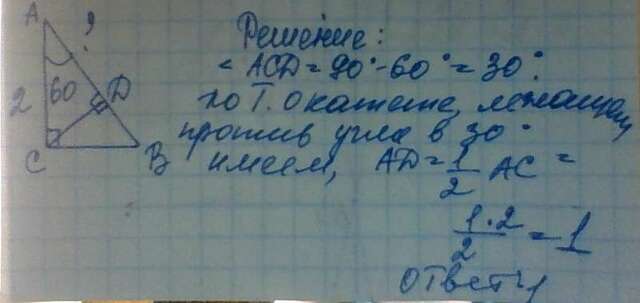 A ?
60
2
D
C
B
Решение:
< ACD = 90° - 60° = 30°.
по Т. о катете, лежащем
против угла в 30°
имеем, AD = 1/2 AC =
1·2/2 = 1
ответ: 1